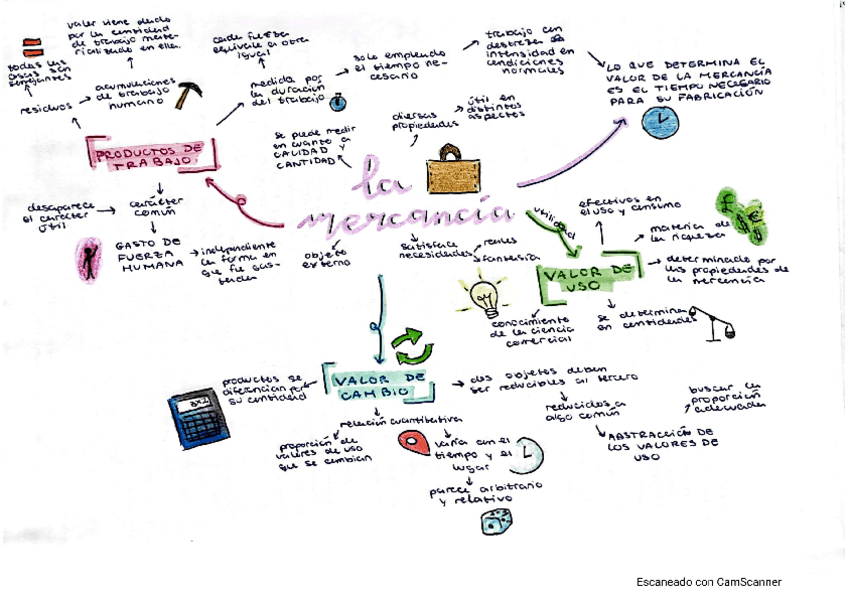 valor viene dado
por la cantidad
de trabajo mate-
rializado en ella.
todas las
cosas son
semejantes
residuos
acumulaciones
de trabajo
humano
cada fuerza
equivale a otra
igual
medida por
la duración
del trabajo
solo empleando
el tiempo ne-
cesario
trabajo con
destreza e
intensidad en
condiciones
normales
LO QUE DETERMINA EL
VALOR DE LA MERCANCÍA
ES EL TIEMPO NECESARIO
PARA SU FABRICACIÓN
PRODUCTOS DE
TRABAJO
se puede medir
en cuanto a
CALIDAD Y
CANTIDAD
diversas
propiedades
útil en
distintos
aspectos
la
mercancía
desaparece
el carácter
útil
carácter
común
GASTO DE
FUERZA
HUMANA
independiente
la forma en
que fue gas-
tada
objeto
externo
satisface
necesidades
reales
fantasía
utilidad
efectivos en
el uso y consumo
materia de
la riqueza
VALOR DE
USO
determinado por
las propiedades de
la mercancía
conocimiento
de la ciencia
comercial
se determina
en cantidades
productos se
diferencian por
su cantidad
VALOR DE
CAMBIO
dos objetos deben
ser reducibles al tercero
reducidos a
algo común
buscar la
proporción
adecuada
ABSTRACCIÓN DE
LOS VALORES DE
USO
relación cuantitativa
proporción de
valores de uso
que se cambian
varía con el
tiempo y el
lugar
parece arbitrario
y relativo
Escaneado con CamScanner